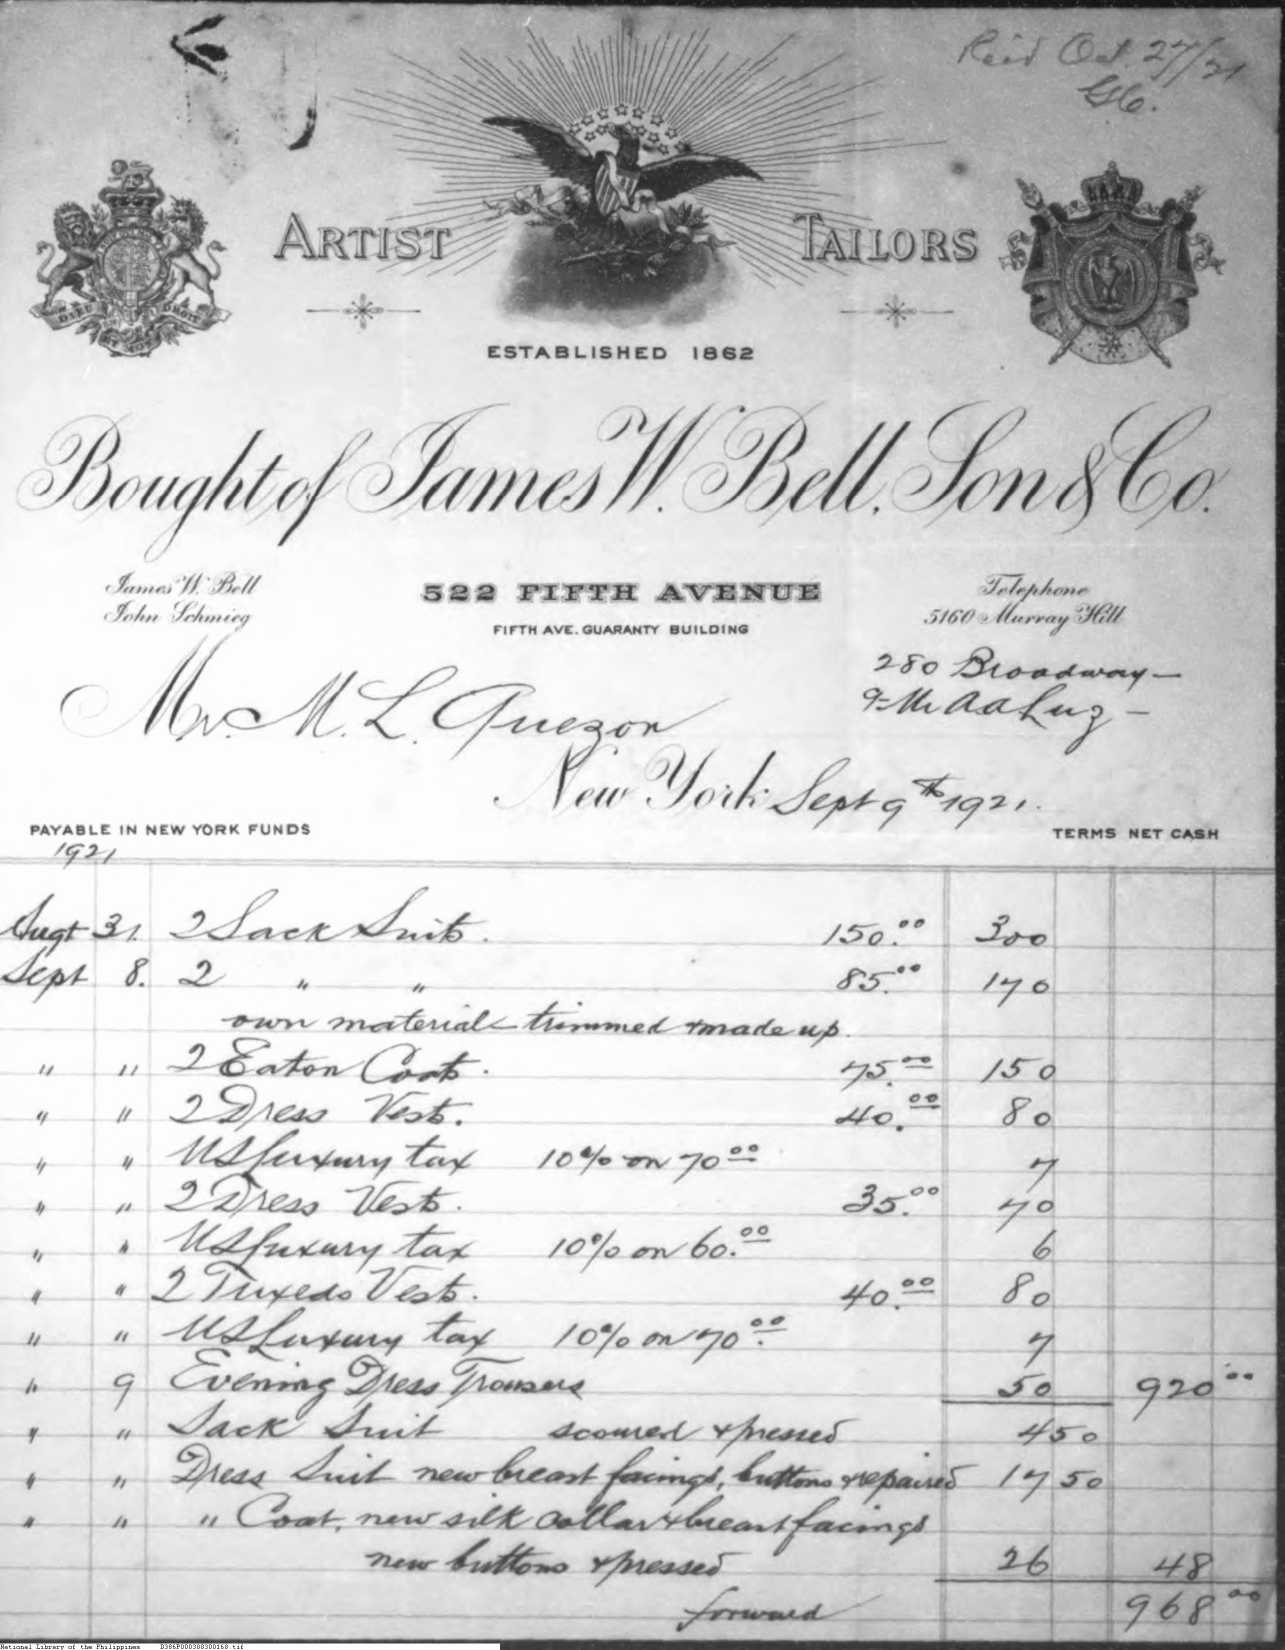 Rec'd Oct. 27/21
ARTIST TAILORS
DIEU ET MON DROIT
ESTABLISHED 1862
Bought of James W. Bell, Son & Co.
James W. Bell
John Schmieg
522 FIFTH AVENUE
FIFTH AVE. GUARANTY BUILDING
Telephone
5160 Murray Hill
280 Broadway —
Mr. M. L. Quezon
New York Sept 9th 1921.
PAYABLE IN NEW YORK FUNDS
TERMS NET CASH
1921
Augt 31. 2 Sack Suits. 150.00 300
Sept 8. 2 " " 85.00 170
own material trimmed & made up.
" " 2 Eaton Coats. 75.00 150
" " 2 Dress Vests. 40.00 80
" " US Luxury tax 10% on 70.00 7
" " 2 Dress Vests. 35.00 70
" " US Luxury tax 10% on 60.00 6
" " 2 Tuxedo Vests. 40.00 80
" " US Luxury tax 10% on 70.00 7
" 9 Evening Dress Trousers 50 920.00
" " Sack Suit scoured & pressed 4 50
" " Dress Suit new breast facings, buttons & repaired 17 50
" " " Coat, new silk collar & breast facings
new buttons & pressed 26 48
forward 968.00
National Library of the Philippines D386P000308300168.tif